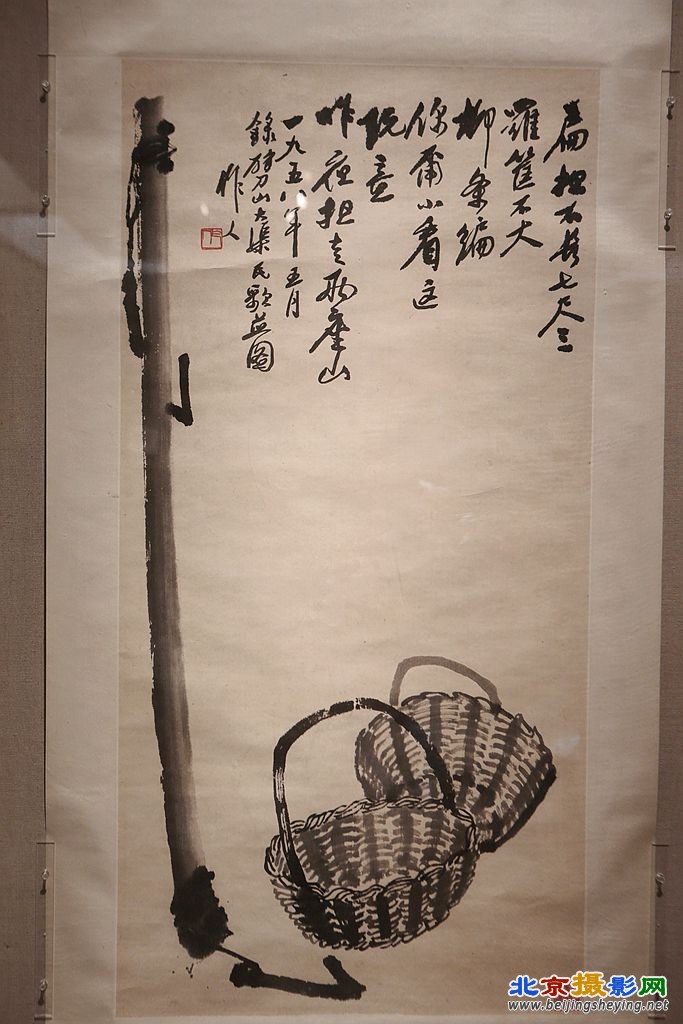 扁担不長七尺三
籮筐不大
柳条编
你甭小看这
玩意
昨夜担走两座山
一九五八年五月
錄劈山大渠民歌並圖
作人
北京摄影网
www.beijingsheying.net